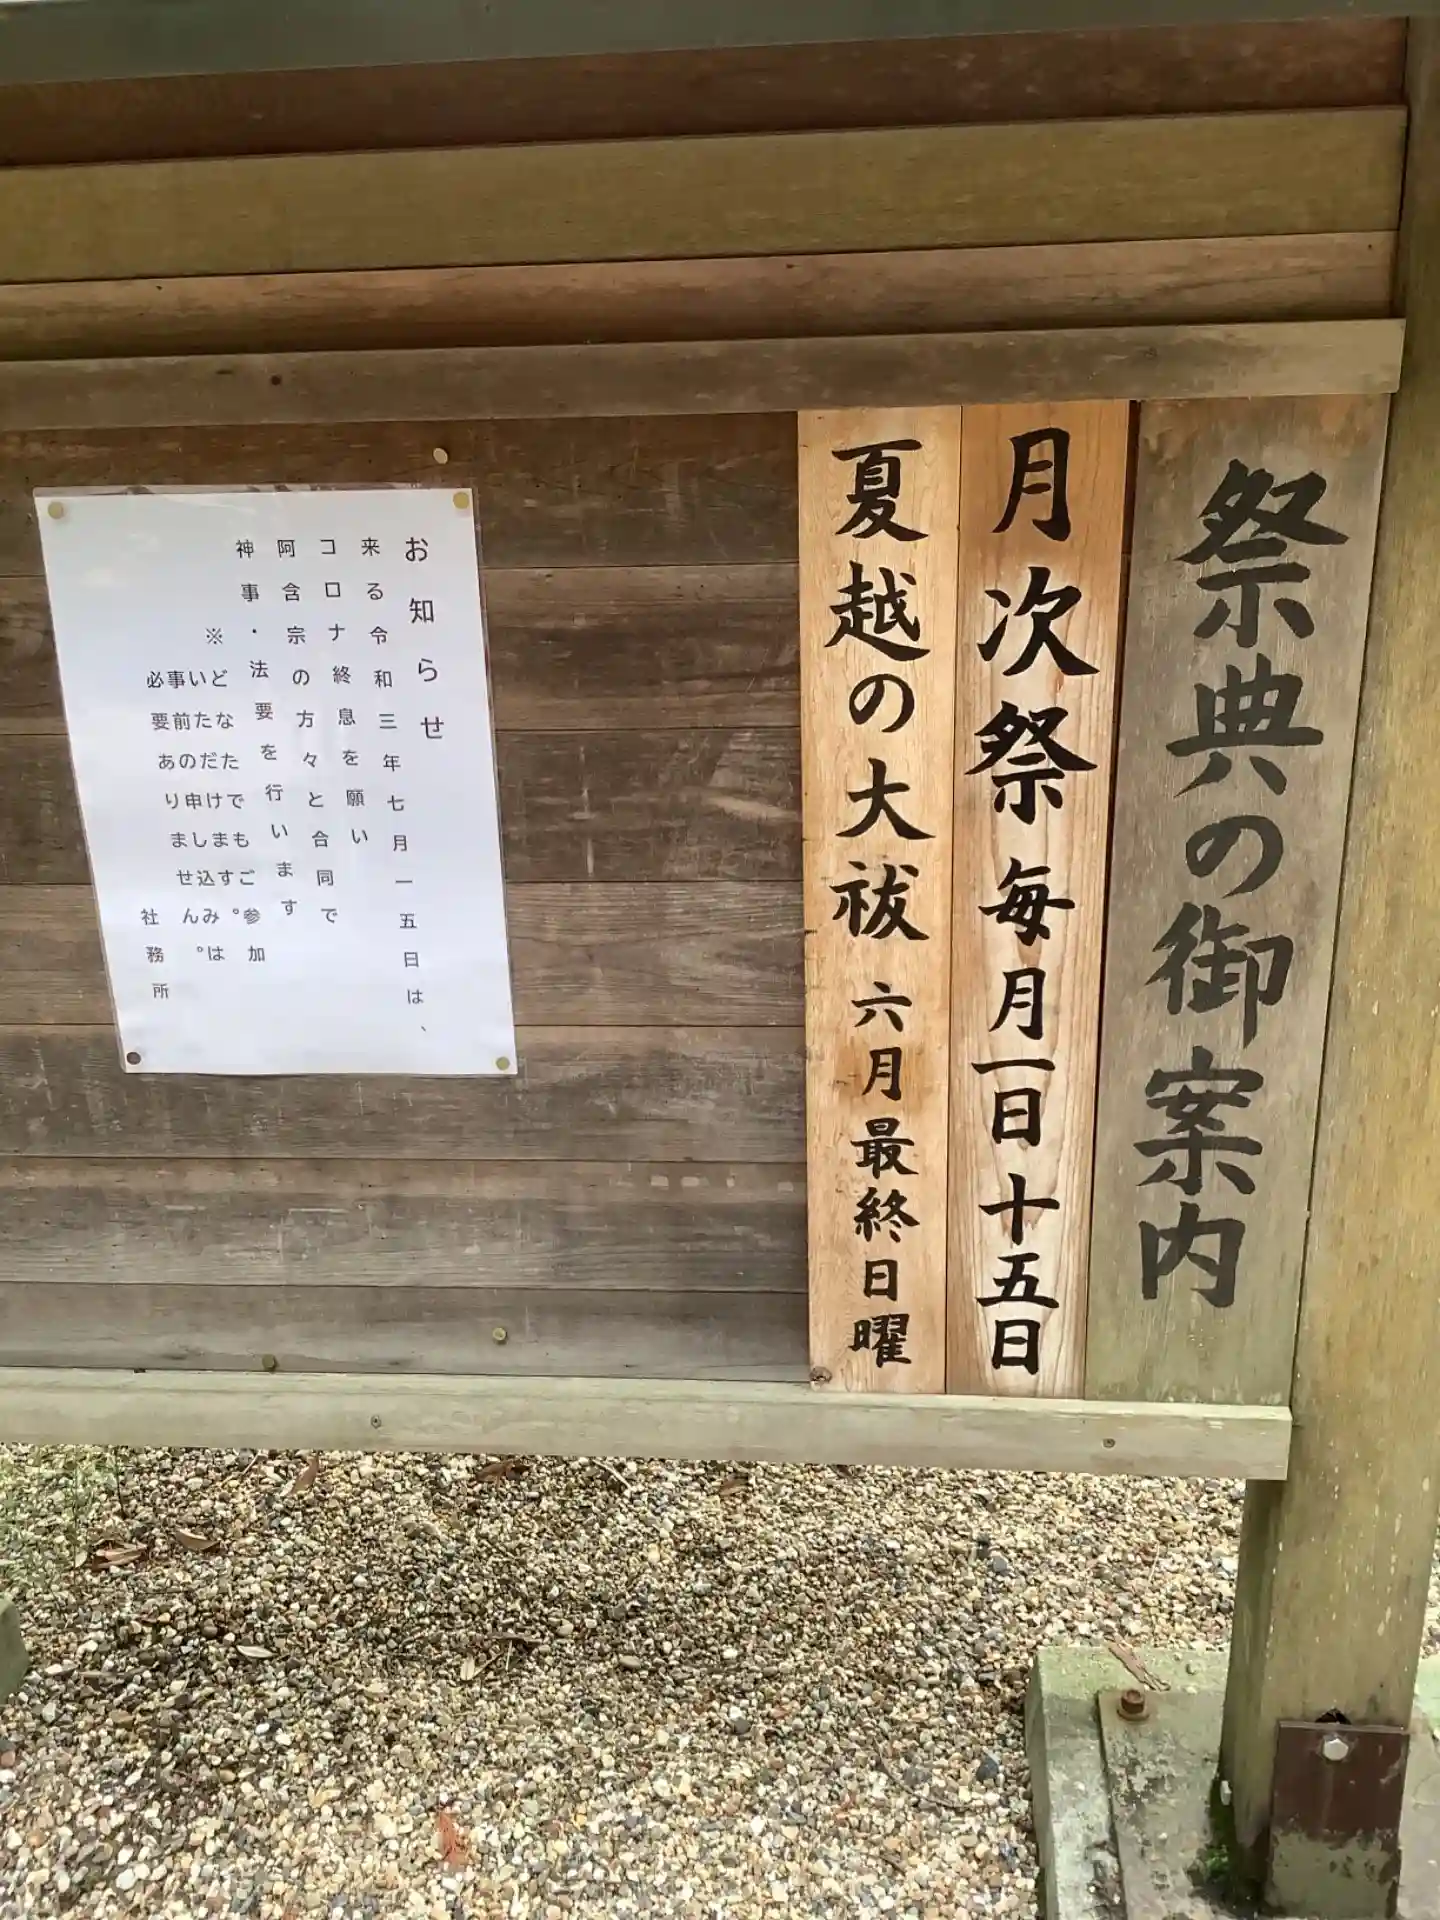 祭典の御案内
月次祭 毎月一日十五日
夏越の大祓 六月最終日曜
お知らせ
来る令和三年七月一五日は、
コロナ終息を願い
阿含宗の方々と合同で
神事・法要を行います
※どなたでもご参加
いただけます。は
事前の申し込み。
必要ありません。
社務所